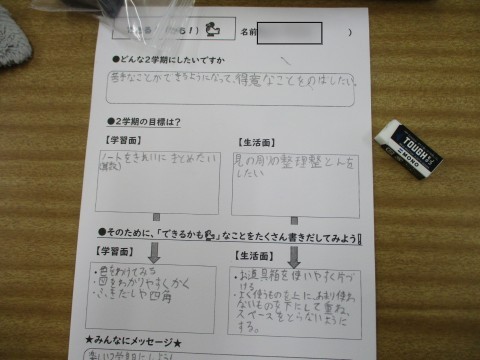 名前
)
●どんな2学期にしたいですか
苦手なことができるようになって、得意なことをのばしたい。
●2学期の目標は?
【学習面】
ノートをきれいにまとめたい
(算数)
【生活面】
身の周りの整理整とんを
したい
●そのために、「できるかも」なことをたくさん書きだしてみよう!
【学習面】
・色をわけてみる
・図をわかりやすくかく
・ふきだしや四角
【生活面】
・お道具箱を使いやすく片づ
ける
・よく使うものを上に、あまり使わ
ないものを下にして重ね、
スペースをとらないように
する。
★みんなにメッセージ★
楽しい2学期にしよう!
TOUGH
MONO